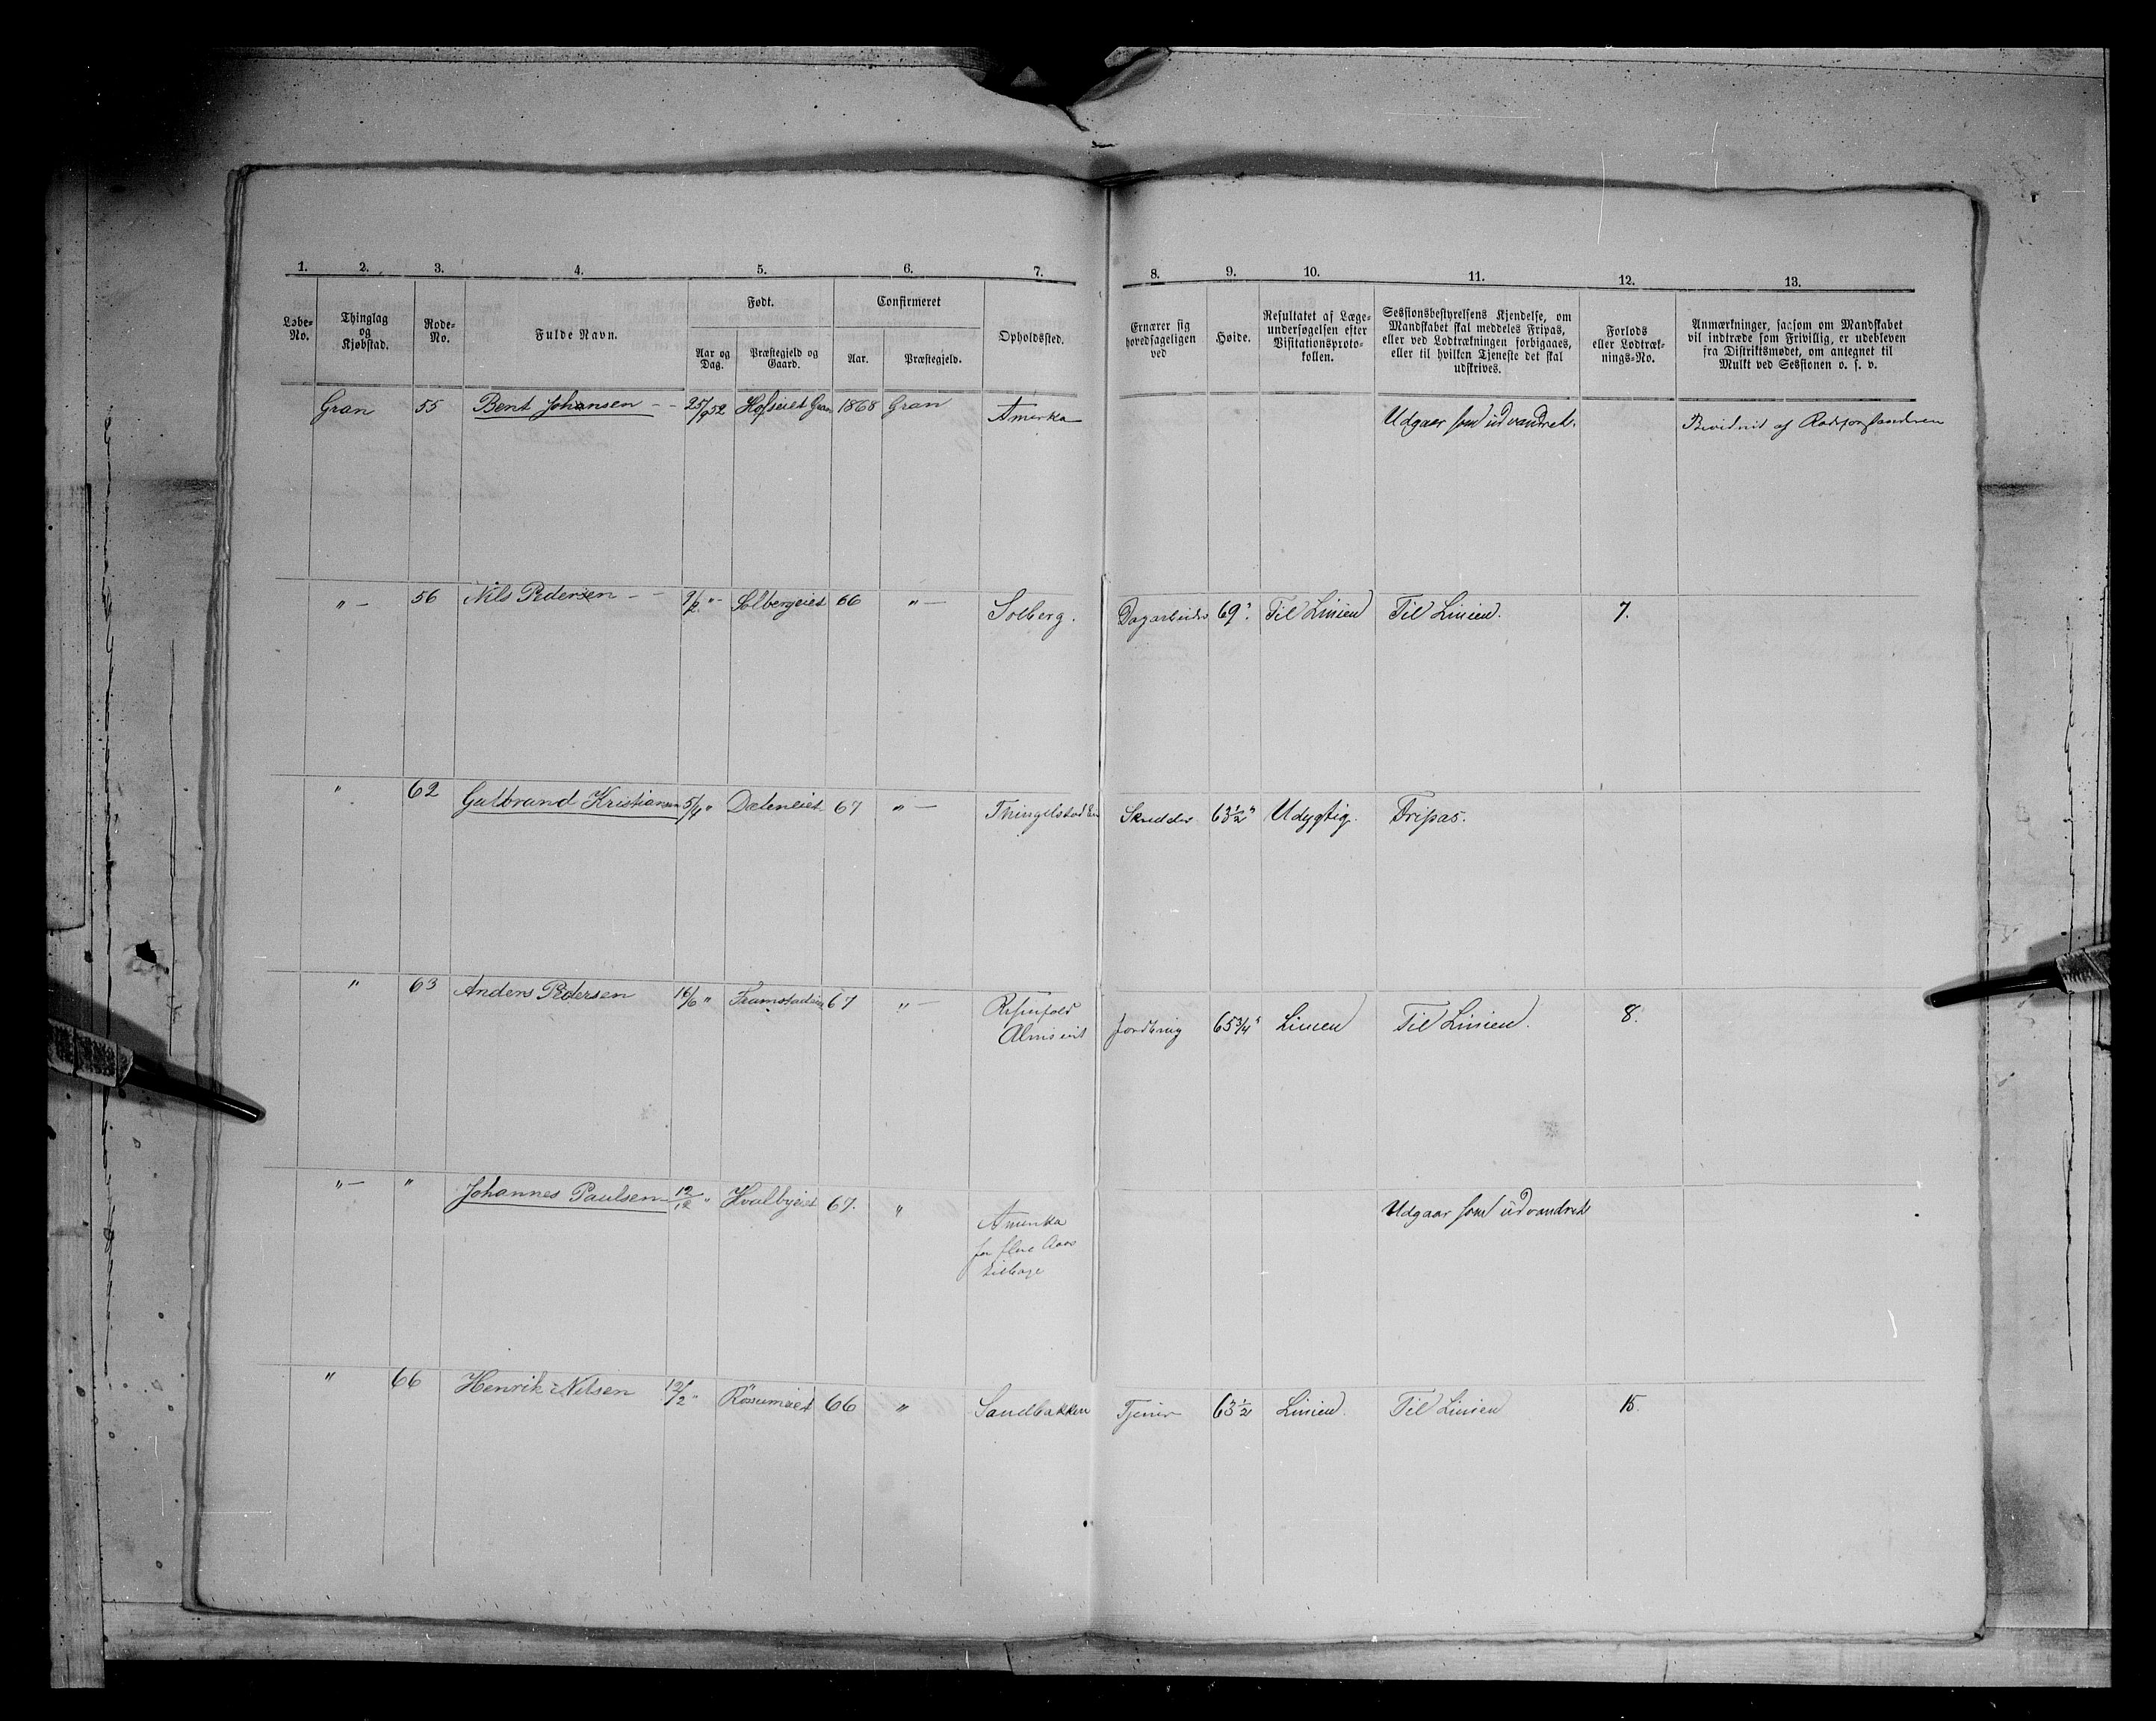 1. 2. 3. 4. 5. 6. 7. 8. 9. 10. 11. 12. 13.
Løbe-
No.
Thinglag
og
Kjøbstad.
Rode-
No.
Fulde Navn.
Født.
Aar og
Dag.
Præstegjeld og
Gaard.
Confirmeret
Aar.
Præstegjeld.
Opholdssted.
Ernærer sig
hovedsageligen
ved
Høide.
Resultatet af Læge-
undersøgelsen efter
Visitationsproto-
kollen.
Sessionsbestyrelsens Kjendelse, om
Mandskabet skal meddeles Fripas,
eller ved Lodtrækningen forbigaaes,
eller til hvilken Tjeneste det skal
udskrives.
Forlods
eller Lodtræk-
nings-No.
Anmærkninger, saasom om Mandskabet
vil indtræde som Frivillig, er udebleven
fra Distriktsmødet, om antegnet til
Mulkt ved Sessionen o. s. v.
Gran 55 Bent Johansen - - 25/9 52 Hofseiet Gran 1868 Gran Amerka Udgaar som udvandret. Bevidnet af Rodeforstanderen
" - 56 Nils Pedersen - - " - Solbergeiet 66 " - Solberg. Dagarbeider 69". Til Linien Til Linien. 7.
" 62 Gulbrand Kristiansen 5/4 " Dæleneiet 67 " - Thingelstad Skredder 63 1/2" Udygtig. Fripas.
" 63 Anders Pedersen 16/6 " Framstadeiet 67 " -
Almseiet Jordbrug 65 3/4" Linien Til Linien. 8.
" - " Johannes Paulsen 12/12 " Hvalbyeiet 67. " Amerika Udgaar som udvandret
for flere Aar
tilbage
" 66 Henrik Nilsen 12/2 " Røsumeiet 66 " Sandbakken Tjener 63 1/2 Linien. Til Linien 15.